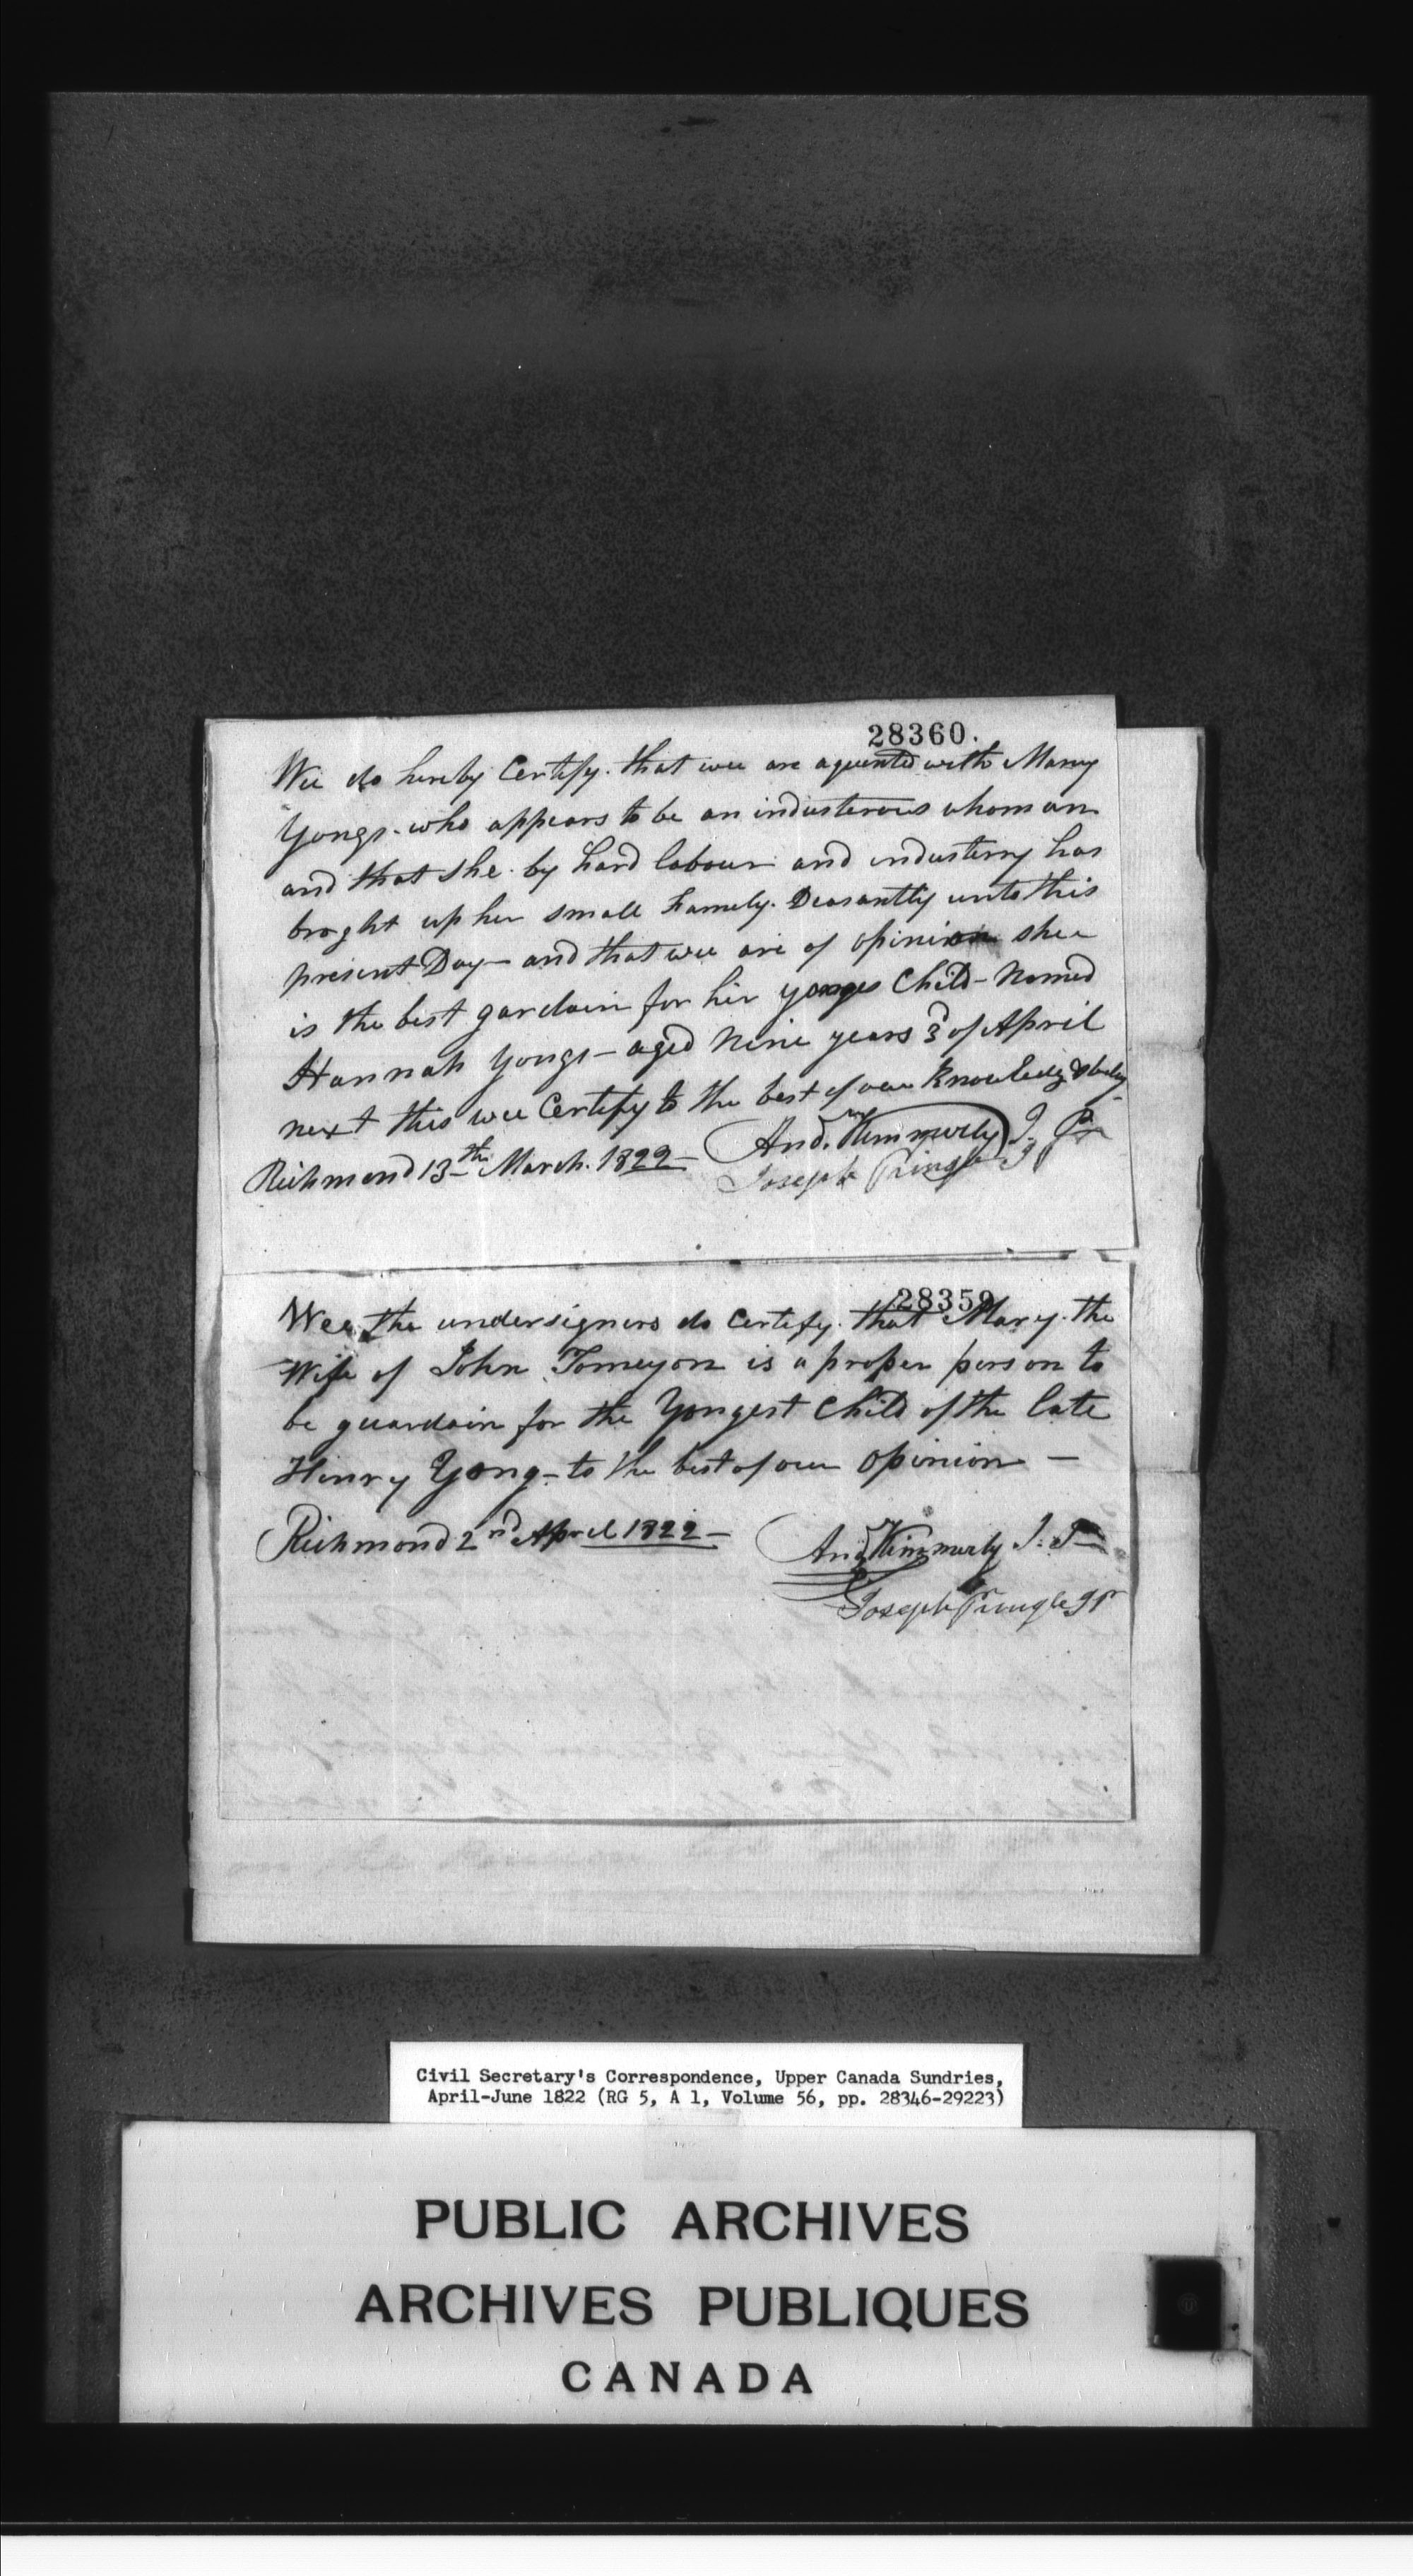 28360.
Wee do hereby Certify. that wee are aquented with Marey
Yongs. who appears to be an industerous whoman
and that She. by hard labour and industerry has
broght up her small Famely. Deasantly unto this
present Day - and that wee are of opinion shee
is the best gardain for her yonges Child - Named
Hannah Yongs - aged Nine years 3d of April
next this wee Certify to the best of our Knowledg &
Richmond 13th March. 1822 - And. Kimmerly J. P.
Joseph Pringle J P
28359
Wee the undersigners do Certify. that Mary. the
Wife of John Tomeyon is a proper person to
be guardain for the Yongest Child of the late
Hinry Yong - to the best of our opinion -
Richmond 2nd April 1822 -
And Kimmerly J. P
Joseph Pringle JP
Civil Secretary's Correspondence, Upper Canada Sundries,
April-June 1822 (RG 5, A 1, Volume 56, pp. 28346-29223)
PUBLIC ARCHIVES
ARCHIVES PUBLIQUES
CANADA